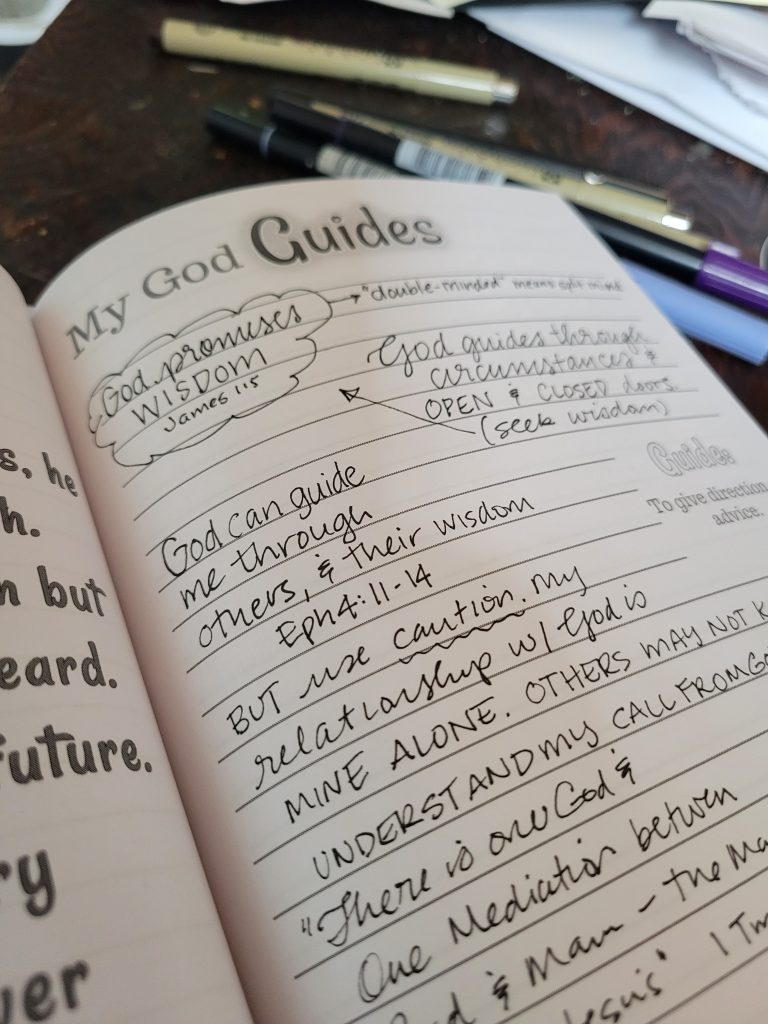 My God Guides
"double-minded" means split mind
God promises
WISDOM
James 1:5
God guides through
circumstances &
OPEN & CLOSED doors
(seek wisdom)
God can guide
me through
others, & their wisdom
Eph 4:11-14
Guides
To give direction
advice.
BUT use caution. My
relationship w/ God is
MINE ALONE. OTHERS MAY NOT K
UNDERSTAND MY CALL FROM GO
"There is one God &
One Mediation betwen
& Man - the Ma
Jesus" 1 Tim
s, he
h.
n but
eard.
future.
ry
ver